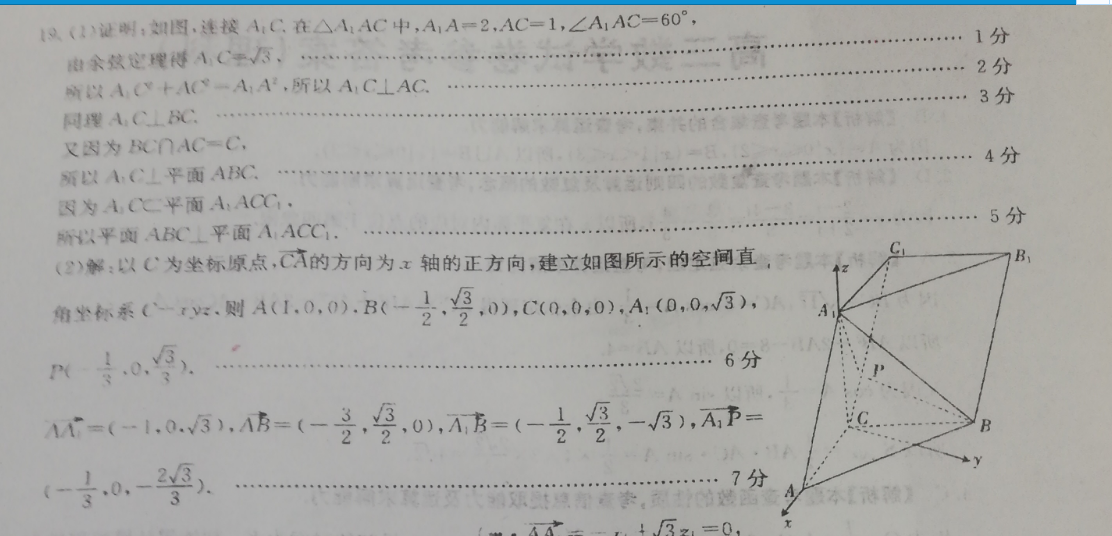 19. (1)证明:如图,连接 A₁C. 在△A₁AC 中,A₁A=2,AC=1,∠A₁AC=60°,
由余弦定理得 A₁C=√3, 1 分
所以 A₁C²+AC²=A₁A²,所以 A₁C⊥AC. 2 分
同理 A₁C⊥BC. 3 分
又因为 BC∩AC=C,
所以 A₁C⊥平面 ABC. 4 分
因为 A₁C⊂平面 A₁ACC₁,
所以平面 ABC⊥平面 A₁ACC₁. 5 分
(2)解:以 C 为坐标原点,CA→的方向为 x 轴的正方向,建立如图所示的空间直
角坐标系 C-xyz,则 A(1,0,0),B(-1/2,√3/2,0),C(0,0,0),A₁(0,0,√3),
P(-1/3,0,√3/3). 6 分
AA₁→=(-1,0,√3),AB→=(-3/2,√3/2,0),A₁B→=(-1/2,√3/2,-√3),A₁P→=
(-1/3,0,-2√3/3). 7 分
z
C₁
B₁
A₁
P
C
B
y
A
x